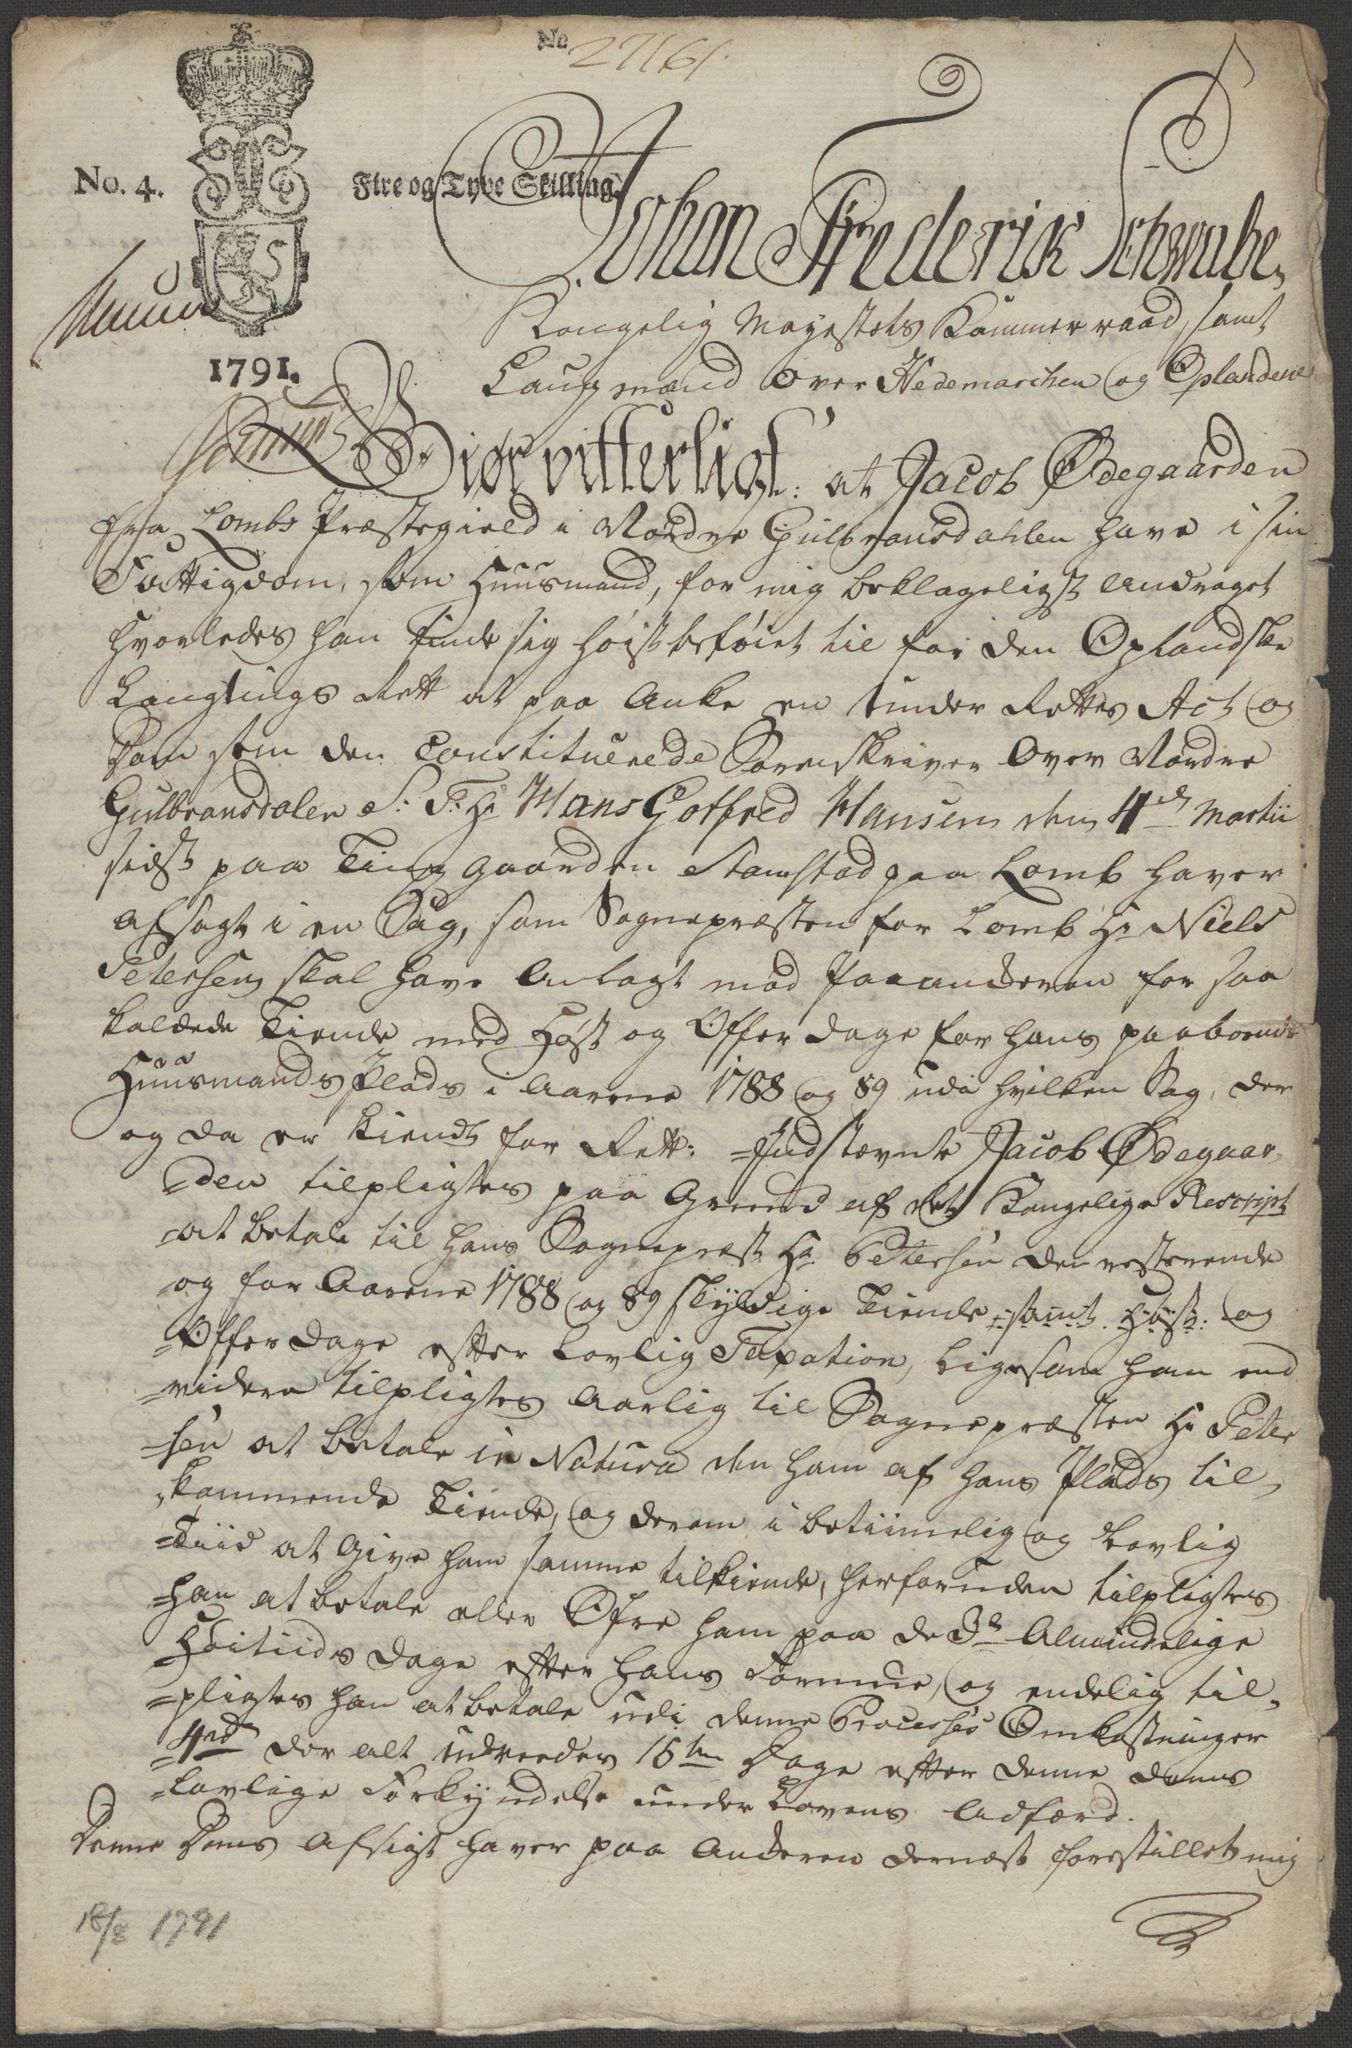 No 27161.
No. 4.
Fire og Tyve Skilling.
1791.
Johan Frederik Schwabe,
Kongelig Mayestets Kammerraad, samt
Laugmand over Hedemarchen og Oplandene
Giør vitterligt: at Jacob Ødegaarden
fra Lombs Præstegield i Nordre Gulbransdahlen have i sin
Fattigdom, som Huusmand, for mig beklageligst andraget
hvorledes han finde sig høist beføiet til for den Oplandske
Laugtings Rett at paa Anke en Under Rettes Act og
Dom som den Constituerede Sorenskriver over Nordre
Gulbransdalen S: T: Hr Hans Gotfred Hansen den 4de Martii
sidst paa Ting Gaarden Stamstad paa Lomb haver
afsagt i en Sag, som Sognepræsten for Lomb Hr Niels
Petersen skal have Anlagt mod Paaanderen for saa
kaldede Tiende med Høst og Offer dage for hans paaboende
Huusmands Plads i Aarene 1788 og 89 udi hvilken Sag, der
og da er kiendt for Rett: Indstevnte Jacob Ødegaar-
den tilpligtes paa Grund af det Kongelige Rescript
at betale til hans Sognepræst Hr Petersen den resterende
og for Aarene 1788 og 89 skyldige Tiende samt Høst: og
Offer dage efter Lovlig Taxation, ligesom han end
videre tilpligtes Aarlig til Sognepræsten Hr Peter
sen at betale in Natura den ham af hans Plads til-
kommende Tiende, og derom i betiimelig og Lovlig
Tiid at Give ham samme tilkiende, herforuden tilpligtes
han at betale eller Ofre ham paa de 3de Almindelige
Høitiids dage efter hans Formue, og endelig til-
pligtes han at betale udi denne Processes Omkostninger
4rd der alt udreedes 15ten Dage efter denne Doms
Lovlige Forkyndelse under Lovens Adfærd.
Denne Doms Afsigt haver paa Anderen dernæst forestillet mig
18/8 1791